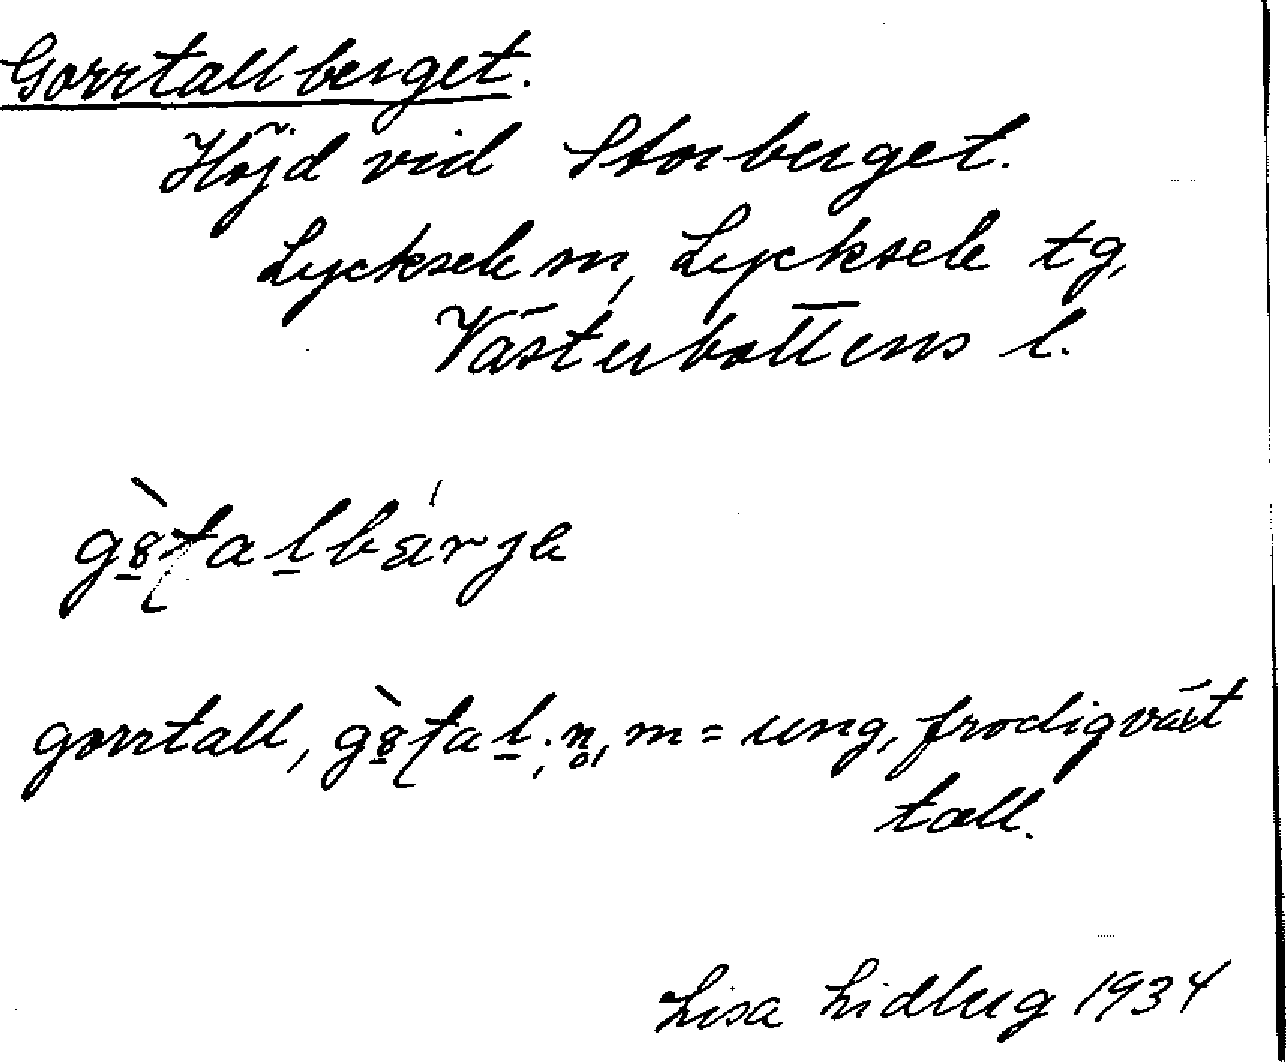 Gorrtallberget.
Höjd vid Storberget.
Lycksele sn, Lycksele tg,
Västerbottens l.
gorrtall, m = ung, frodigväxt
tall.
Lisa Lidberg 1934